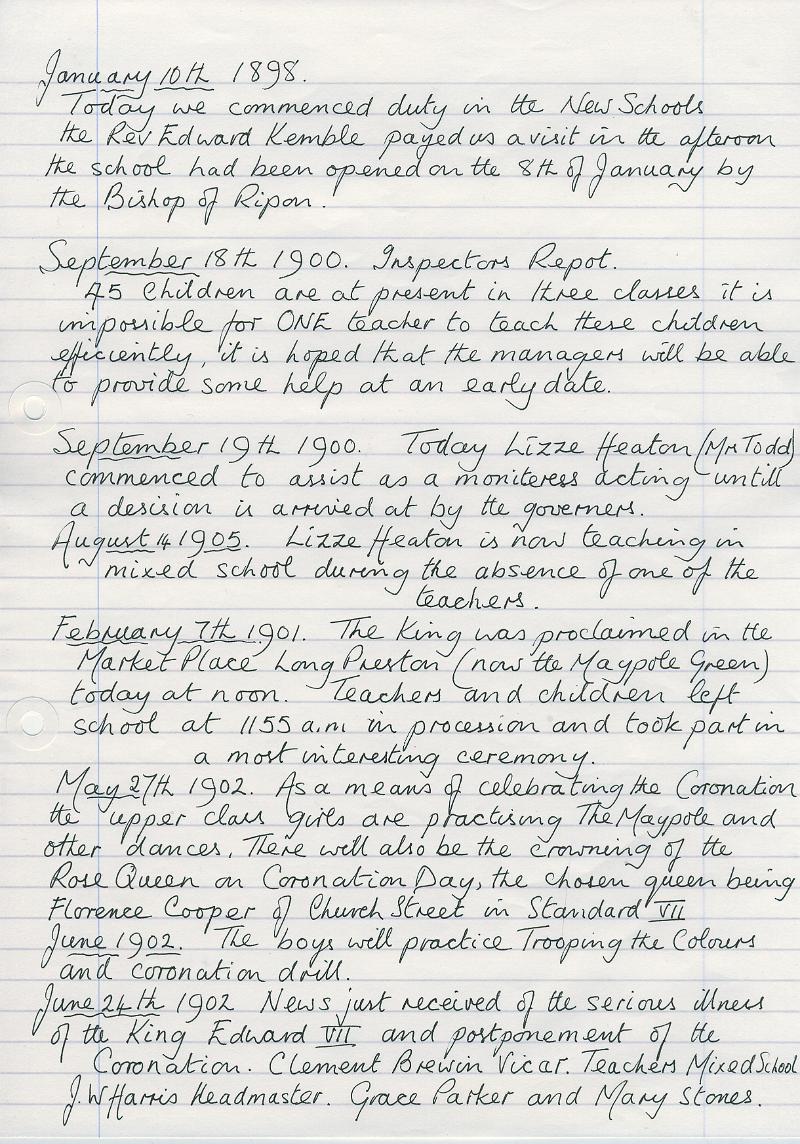 January 10th 1898.
Today we commenced duty in the New Schools
the Rev Edward Kemble payed us a visit in the afteroon
the school had been opened on the 8th of January by
the Bishop of Ripon.
September 18th 1900. Inspectors Repot.
45 Children are at present in three classes it is
impossible for ONE teacher to teach these children
efficiently, it is hoped that the managers will be able
to provide some help at an early date.
September 19th 1900. Today Lizze Heaton (Mrs Todd)
commenced to assist as a moniteress acting untill
a desision is arrived at by the governers.
August 14 1905. Lizze Heaton is now teaching in
mixed school during the absence of one of the
teachers.
February 7th 1901. The King was proclaimed in the
Market Place Long Preston (now the Maypole Green)
today at noon. Teachers and children left
school at 1155 a.m in procession and took part in
a most interesting ceremony.
May 27th 1902. As a means of celebrating the Coronation
the upper class girls are practising The Maypole and
other dances, There will also be the crowning of the
Rose Queen on Coronation Day, the chosen queen being
Florence Cooper of Church Street in Standard VII
June 1902. The boys will practice Trooping the Colours
and coronation drill.
June 24th 1902 News just received of the serious illness
of the King Edward VII and postponement of the
Coronation. Clement Brewin Vicar. Teachers Mixed School
J.W Harris Headmaster. Grace Parker and Mary Stones.